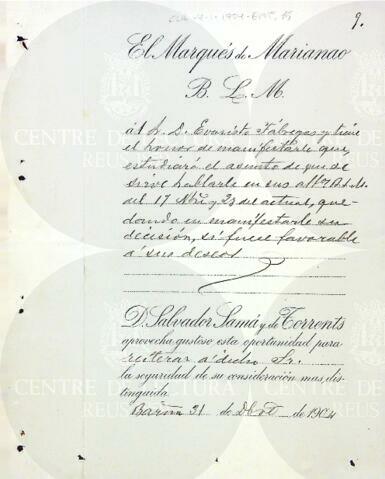 9.
El Marqués de Marianao
B. L. M.
al Sr. D. Evaristo Fábregas y tiene
el honor de manifestarle que,
estudiará el asunto de que se
sirve hablarle en sus attos B. L. M.
del 17 Nbre y 23 del actual, que-
dando en manifestarle su
decisión, si fuese favorable
a sus deseos
D. Salvador Samá y de Torrents
aprovecha gustoso esta oportunidad para
reiterar a dicho Sr.
la seguridad de su consideración mas dis-
tinguida.
Barna 31 de Dbre de 1904
CENTRE DE LECTURA
REUS